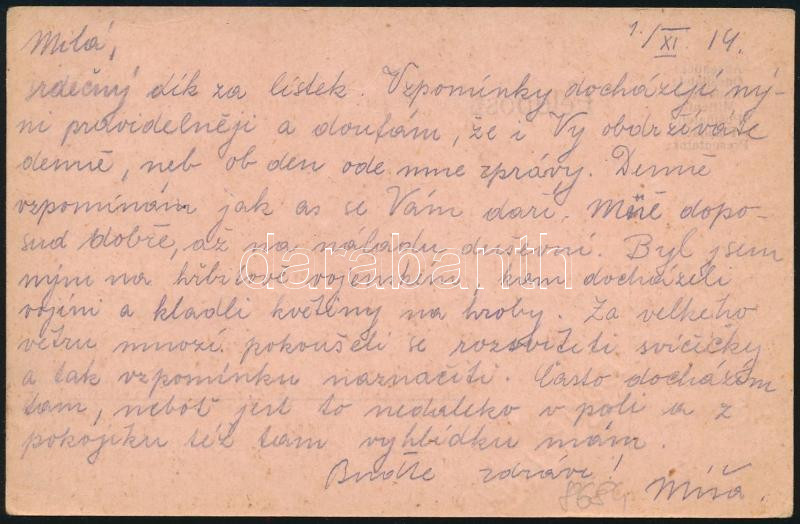 1./XI. 14.
Milá,
srdečný dík za lístek. Vzpomínky docházejí ný-
ní pravidelněji a doufám, že i Vy obdržíváte
denně, neb ob den ode mne zprávy. Denně
vzpomínám jak as se Vám daří. Mně dopo-
sud dobře, až na náladu duševní. Byl jsem
nyní na hřbitově vojenském, kam docházeli
vojíni a kladli květiny na hroby. Za velkého
větru mnozí pokoušeli se rozsvítiti svíčičky
a tak vzpomínku naznačiti. Často docházím
tam, neboť jest to nedaleko v poli a z
pokojíku též tam vyhlídku mám.
Buďte zdrávi!
Míša.
darabanth
Feldpost